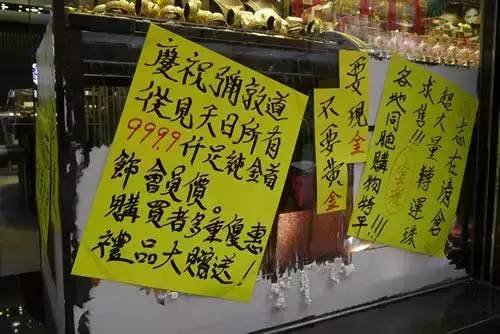 慶祝彌敦道
從見天日所有
999.9仟足純金首
飾會員價。
購買者多重優惠
禮品大贈送！
要現金
不要黃金
志在清倉
超大量轉運珠
求售!!!
各地同胞購物特平!!!